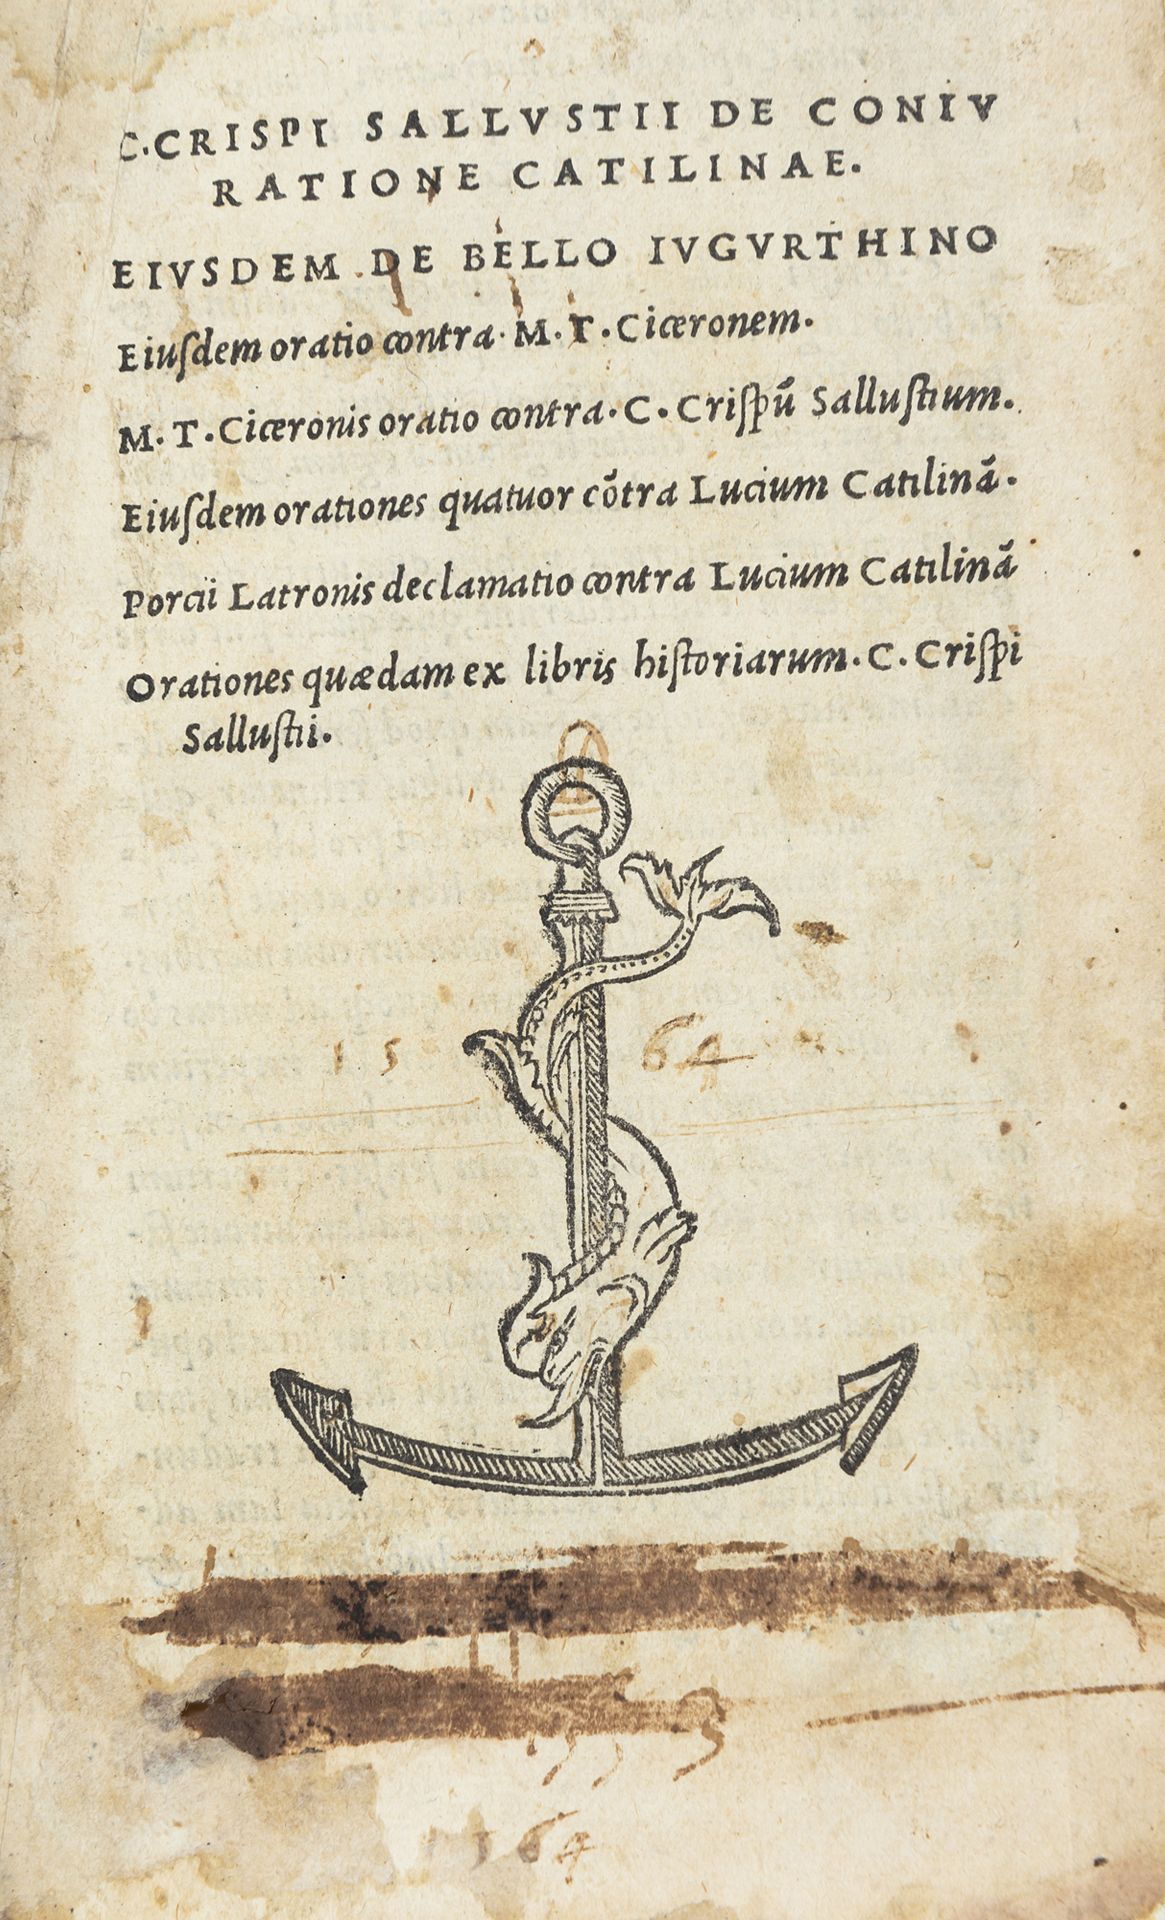 C. CRISPI SALLVSTII DE CONIV
RATIONE CATILINAE.
EIVSDEM DE BELLO IVGVRTHINO
Eiuſdem oratio contra. M. T. Ciceronem.
M. T. Ciceronis oratio contra. C. Criſpū Salluſtium.
Eiuſdem orationes quatuor cōtra Lucium Catilinā.
Porcii Latronis declamatio contra Lucium Catilinā
Orationes quædam ex libris hiſtoriarum. C. Criſpi
Salluſtii.
15 64
1564